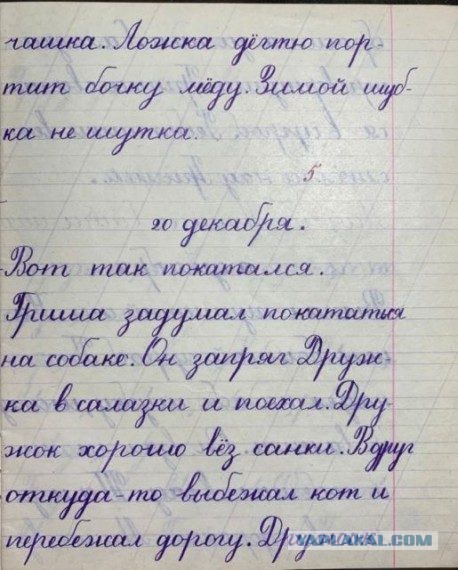 чашка. Ложка дёгтю пор-
тит бочку мёду. Зимой шуб-
ка не шутка.
5
20 декабря.
Вот так покатался.
Гриша задумал покататься
на собаке. Он запряг Друж-
ка в салазки и поехал. Дру-
жок хорошо вёз санки. Вдруг
откуда-то выбежал кот и
перебежал дорогу. Дружок
YAPLAKAL.COM